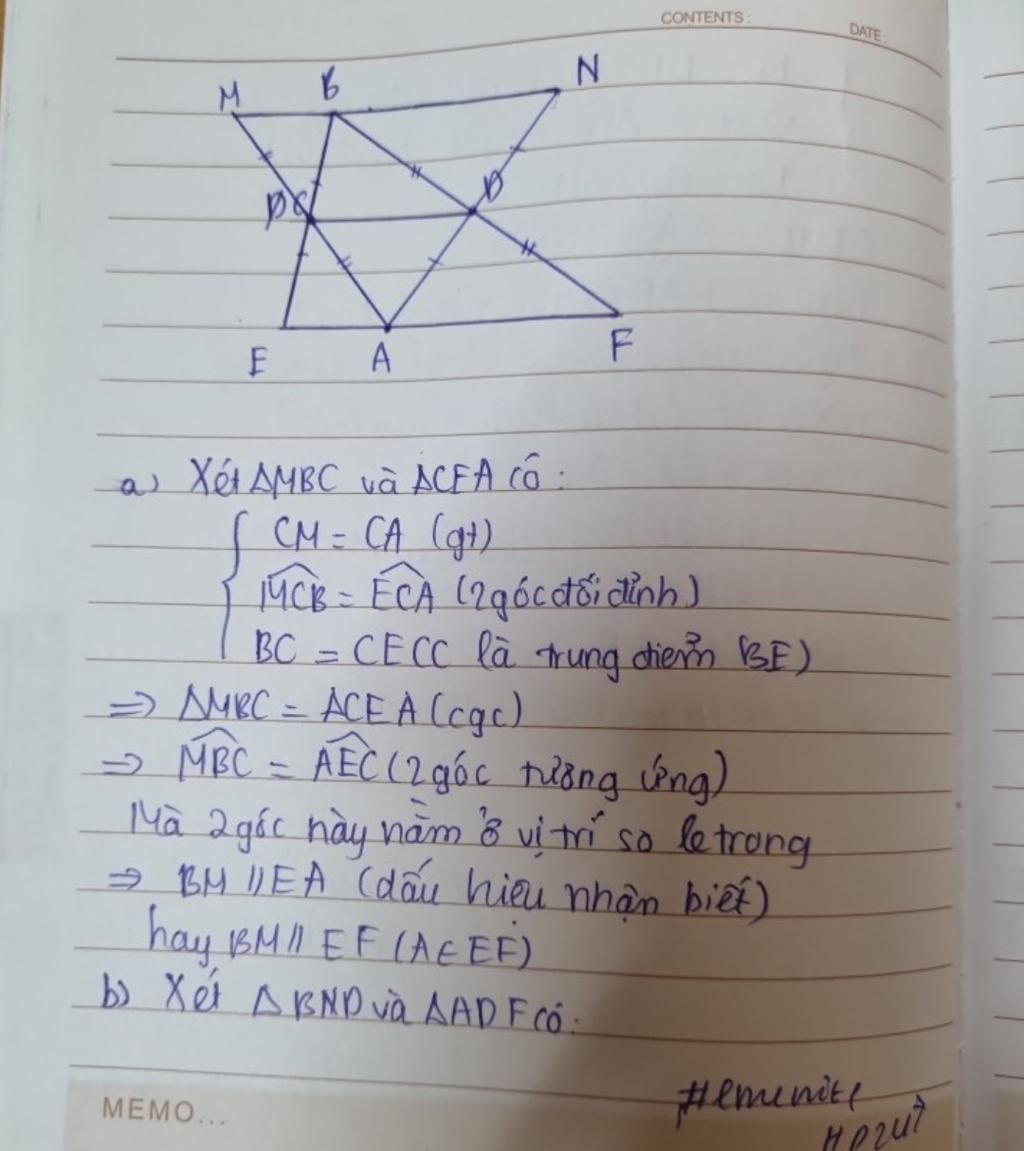 CONTENTS:
DATE:
M B N
D
E A F
a) Xét ΔMBC và ΔCEA có:
CM = CA (gt)
MCB = ECA (2 góc đối đỉnh)
BC = CECC là trung điểm BE)
=> ΔMBC = ΔCEA (cgc)
=> MBC = AEC (2 góc tương ứng)
Mà 2 góc này nằm ở vị trí so le trong
=> BM // EA (dấu hiệu nhận biết)
hay BM // EF (A ∈ EF)
b) Xét ΔBND và ΔADF có:
MEMO...